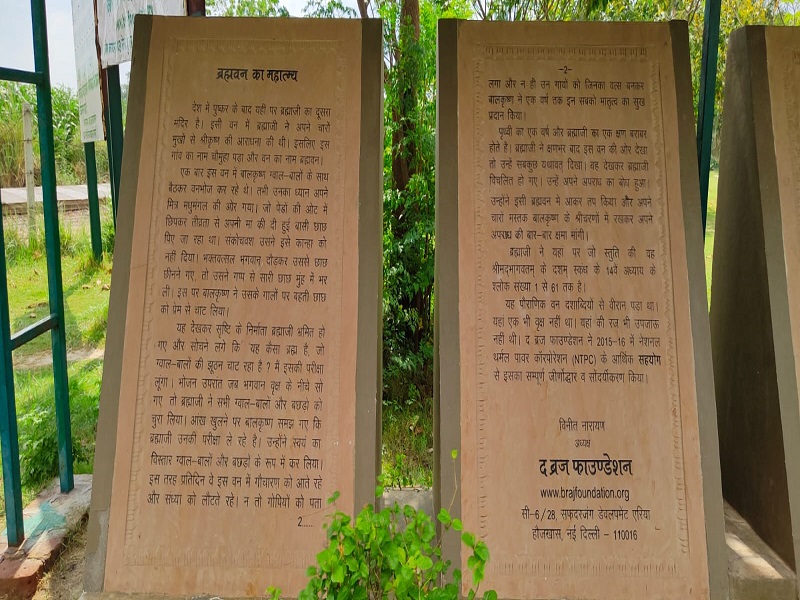 ब्रह्मवन का महात्म्य
देश में पुष्कर के बाद यही पर ब्रह्माजी का दूसरा
मंदिर है। इसी वन में ब्रह्माजी ने अपने चारों
मुखों से श्रीकृष्ण की आराधना की थी। इसलिए इस
गाव का नाम चौमुहा पडा और वन का नाम ब्रह्मवन।
एक बार इस वन में बालकृष्ण ग्वाल-बालों के साथ
बैठकर वनभोज कर रहे थे। तभी उनका ध्यान अपने
मित्र मधुमंगल की ओर गया। जो पेडों की ओट में
छिपकर तीव्रता से अपनी मा की दी हुई बासी छाछ
पिए जा रहा था। सकोचवश उसने इसे कान्हा को
नहीं दिया। भक्तवत्सल भगवान् दौडकर उससे छाछ
छीनने गए, तो उसने गप्प से सारी छाछ मुह में भर
ली। इस पर बालकृष्ण ने उसके गालों पर बहती छाछ
को प्रेम से चाट लिया।
यह देखकर सृष्टि के निर्माता ब्रह्माजी भ्रमित हो
गए और सोचने लगे कि यह कैसा ब्रह्म है, जो
ग्वाल-बालों की झूठन चाट रहा है ? मैं इसकी परीक्षा
लूगा। भोजन उपरांत जब भगवान वृक्ष के नीचे सो
गए तो ब्रह्माजी ने सभी ग्वाल-बालों और बछडों को
चुरा लिया। आख खुलने पर बालकृष्ण समझ गए कि
ब्रह्माजी उनकी परीक्षा ले रहे हैं। उन्होंने स्वयं का
विस्तार ग्वाल-बालों और बछडों के रूप में कर लिया।
इस तरह प्रतिदिन वे इस वन में गौचारण को आते रहे
और सध्या को लौटते रहे। न तो गोपियों को पता
2....
-2-
लगा और न ही उन गायों को जिनका वत्स बनकर
बालकृष्ण ने एक वर्ष तक इन सबको मातृत्व का सुख
प्रदान किया।
पृथ्वी का एक वर्ष और ब्रह्माजी का एक क्षण बराबर
होते है। ब्रह्माजी ने क्षणभर बाद इस वन की ओर देखा
तो उन्हे सबकुछ यथावत दिखा। यह देखकर ब्रह्माजी
विचलित हो गए। उन्हें अपने अपराध का बोध हुआ।
उन्होंने इसी ब्रह्मवन में आकर तप किया और अपने
चारों मस्तक बालकृष्ण के श्रीचरणों मे रखकर अपने
अपराध की बार-बार क्षमा मांगी।
ब्रह्माजी ने यहा पर जो स्तुति की यह
श्रीमद्भागवतम् के दशम् स्कंध के 14वें अध्याय के
श्लोक संख्या 1 से 61 तक है।
यह पौराणिक वन दशाब्दियों से वीरान पडा था।
यहा एक भी वृक्ष नहीं था। यहां की रज भी उपजाऊ
नहीं थी। द ब्रज फाउण्डेशन ने 2015-16 में नेशनल
थर्मल पावर कॉरपोरेशन (NTPC) के आर्थिक सहयोग
से इसका सम्पूर्ण जीर्णोद्धार व सौंदर्यीकरण किया।
विनीत नारायण
अध्यक्ष
द ब्रज फाउण्डेशन
www.brajfoundation.org
सी-6/28, सफदरजंग डेवलपमेंट एरिया
हौजखास, नई दिल्ली - 110016